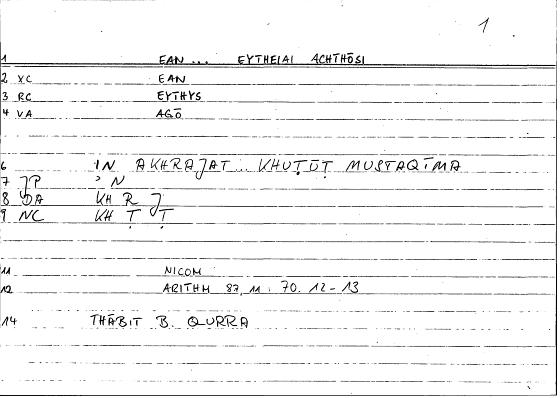 1
1 EAN... EYTHEIAI ACHTHŌSI
2 XC EAN
3 RC EYTHYS
4 VA AGŌ
6 'IN AKHRAJAT... KHUṬŪṬ MUSTAQĪMA
7 JP 'N
8 DA KH R J
9 NC KH Ṭ Ṭ
11 NICOM
12 ARITHM 87, 11 : 70. 12-13
14 THĀBIT B. QURRA